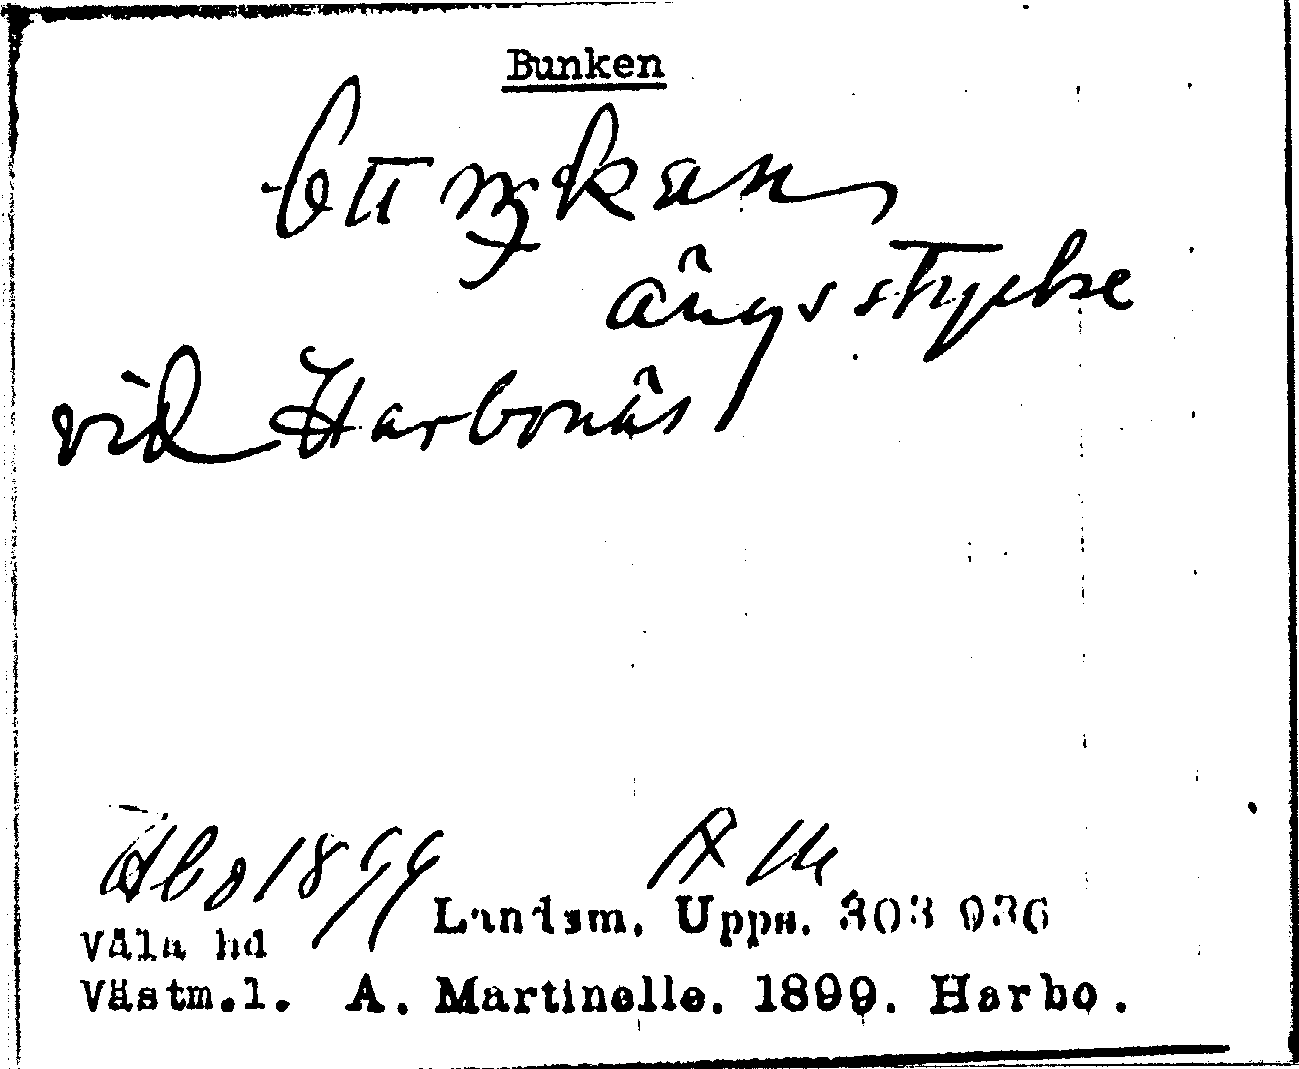 Bunken
ängsstycke
vid Harbonäs
Hbo 1899 AM
Landsm. Upps. 303 936
Våla hd
Västm.l. A. Martinelle. 1899. Harbo.